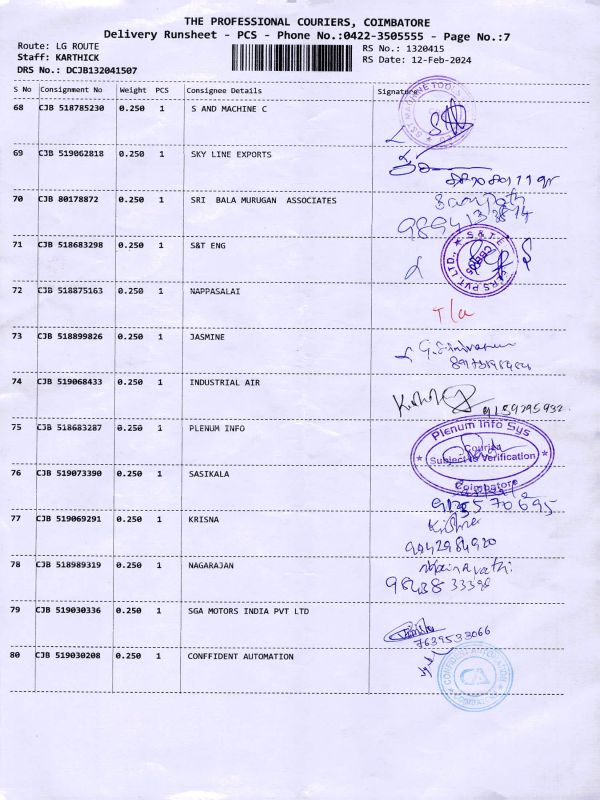 THE PROFESSIONAL COURIERS, COIMBATORE
Delivery Runsheet - PCS - Phone No.:0422-3505555 - Page No.:7
Route: LG ROUTE
Staff: KARTHICK
DRS No.: DCJB132041507
RS No.: 1320415
RS Date: 12-Feb-2024
S No Consignment No Weight PCS Consignee Details Signature
68 CJB 518785230 0.250 1 S AND MACHINE C
69 CJB 519062818 0.250 1 SKY LINE EXPORTS
70 CJB 80178872 0.250 1 SRI BALA MURUGAN ASSOCIATES
9894133814
71 CJB 518683298 0.250 1 S&T ENG
72 CJB 518875163 0.250 1 NAPPASALAI
T/a
73 CJB 518899826 0.250 1 JASMINE
74 CJB 519068433 0.250 1 INDUSTRIAL AIR
9159295932
75 CJB 518683287 0.250 1 PLENUM INFO
Plenum Info Sys
Courier
Subject to Verification
Coimbatore
76 CJB 519073390 0.250 1 SASIKALA
77 CJB 519069291 0.250 1 KRISNA
Krishna
9042984920
78 CJB 518989319 0.250 1 NAGARAJAN
9843833398
79 CJB 519030336 0.250 1 SGA MOTORS INDIA PVT LTD
7639533066
80 CJB 519030208 0.250 1 CONFFIDENT AUTOMATION
CA